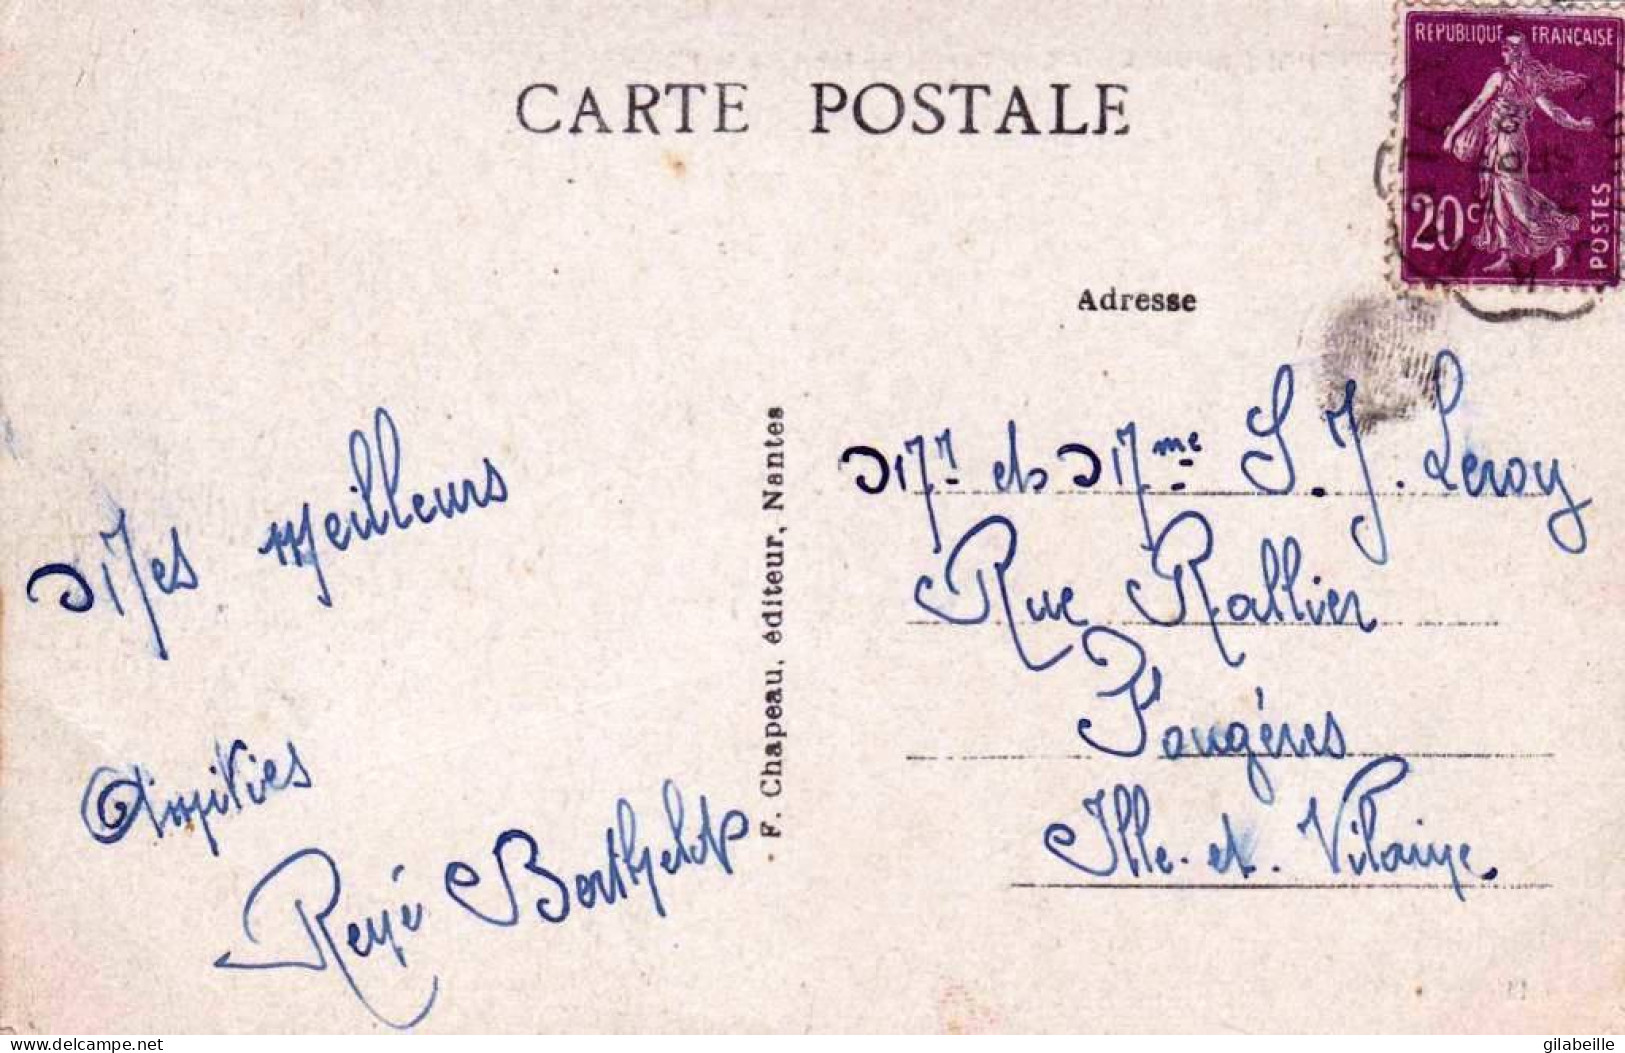 CARTE POSTALE
REPUBLIQUE FRANCAISE
20c
POSTES
Adresse
Mes meilleurs
Amitiés
René Berthelot
F. Chapeau, éditeur, Nantes
Mr et Mme S. J. Leroy
Rue Rallier
Fougères
Ille-et-Vilaine.
delcampe.net
gilabeille